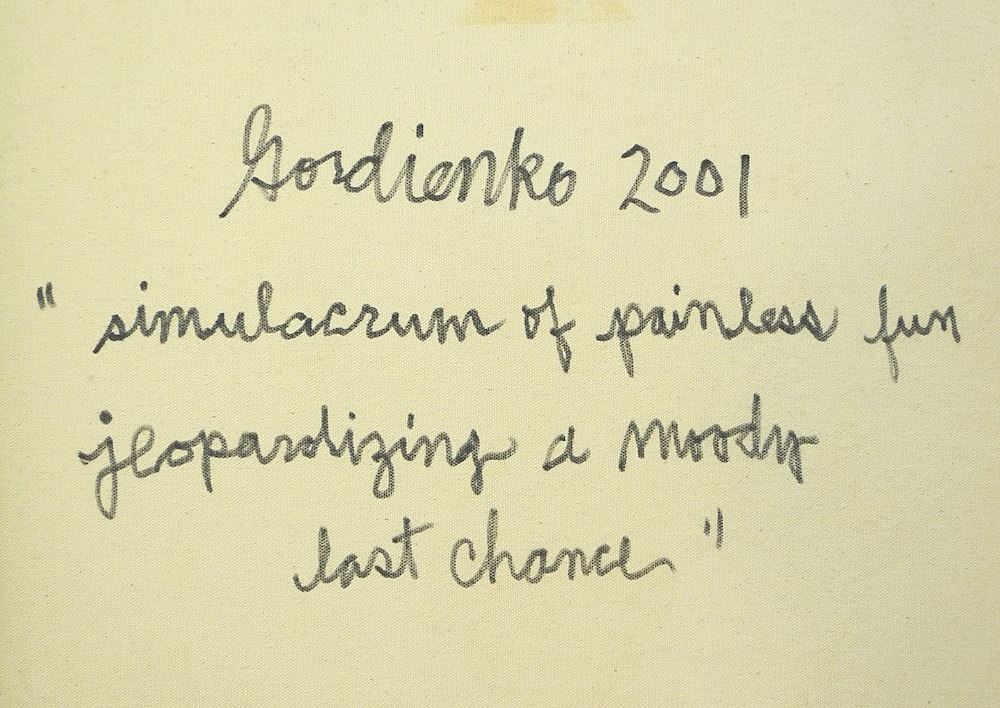 Gordienko 2001
" simulacrum of painless fun
jeopardizing a moody
last chance "